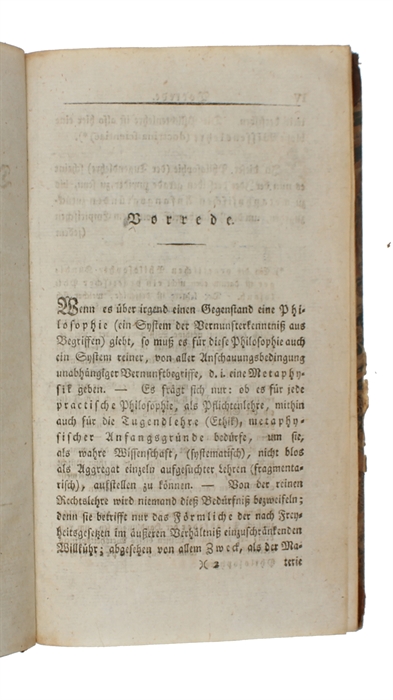 Vorrede.
Wenn es über irgend einen Gegenstand eine Phi-
losophie (ein System der Vernunfterkenntniß aus
Begriffen) giebt, so muß es für diese Philosophie auch
ein System reiner, von aller Anschauungsbedingung
unabhängiger Vernunftbegriffe, d. i. eine Metaphy-
sik geben. — Es frägt sich nur: ob es für jede
practische Philosophie, als Pflichtenlehre, mithin
auch für die Tugendlehre (Ethik), metaphy-
sischer Anfangsgründe bedürfe, um sie,
als wahre Wissenschaft, (systematisch), nicht blos
als Aggregat einzeln aufgesuchter Lehren (fragmenta-
risch), aufstellen zu können. — Von der reinen
Rechtslehre wird niemand dieß Bedürfniß bezweifeln;
denn sie betrifft nur das Förmliche der nach Frey-
heitsgesetzen im äußeren Verhältniß einzuschränkenden
Willkühr; abgesehen von allem Zweck, als der Ma-
)( 2 terie